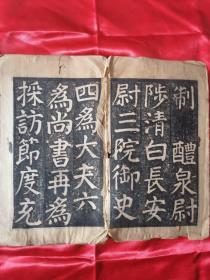 制醴泉尉
陟清白長安
尉三院御史
四為大夫六
為尚書再為
採訪節度充